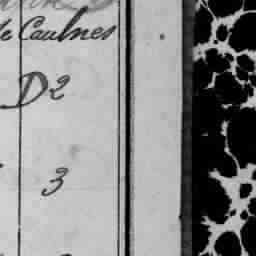 de Caulnes
D2
3